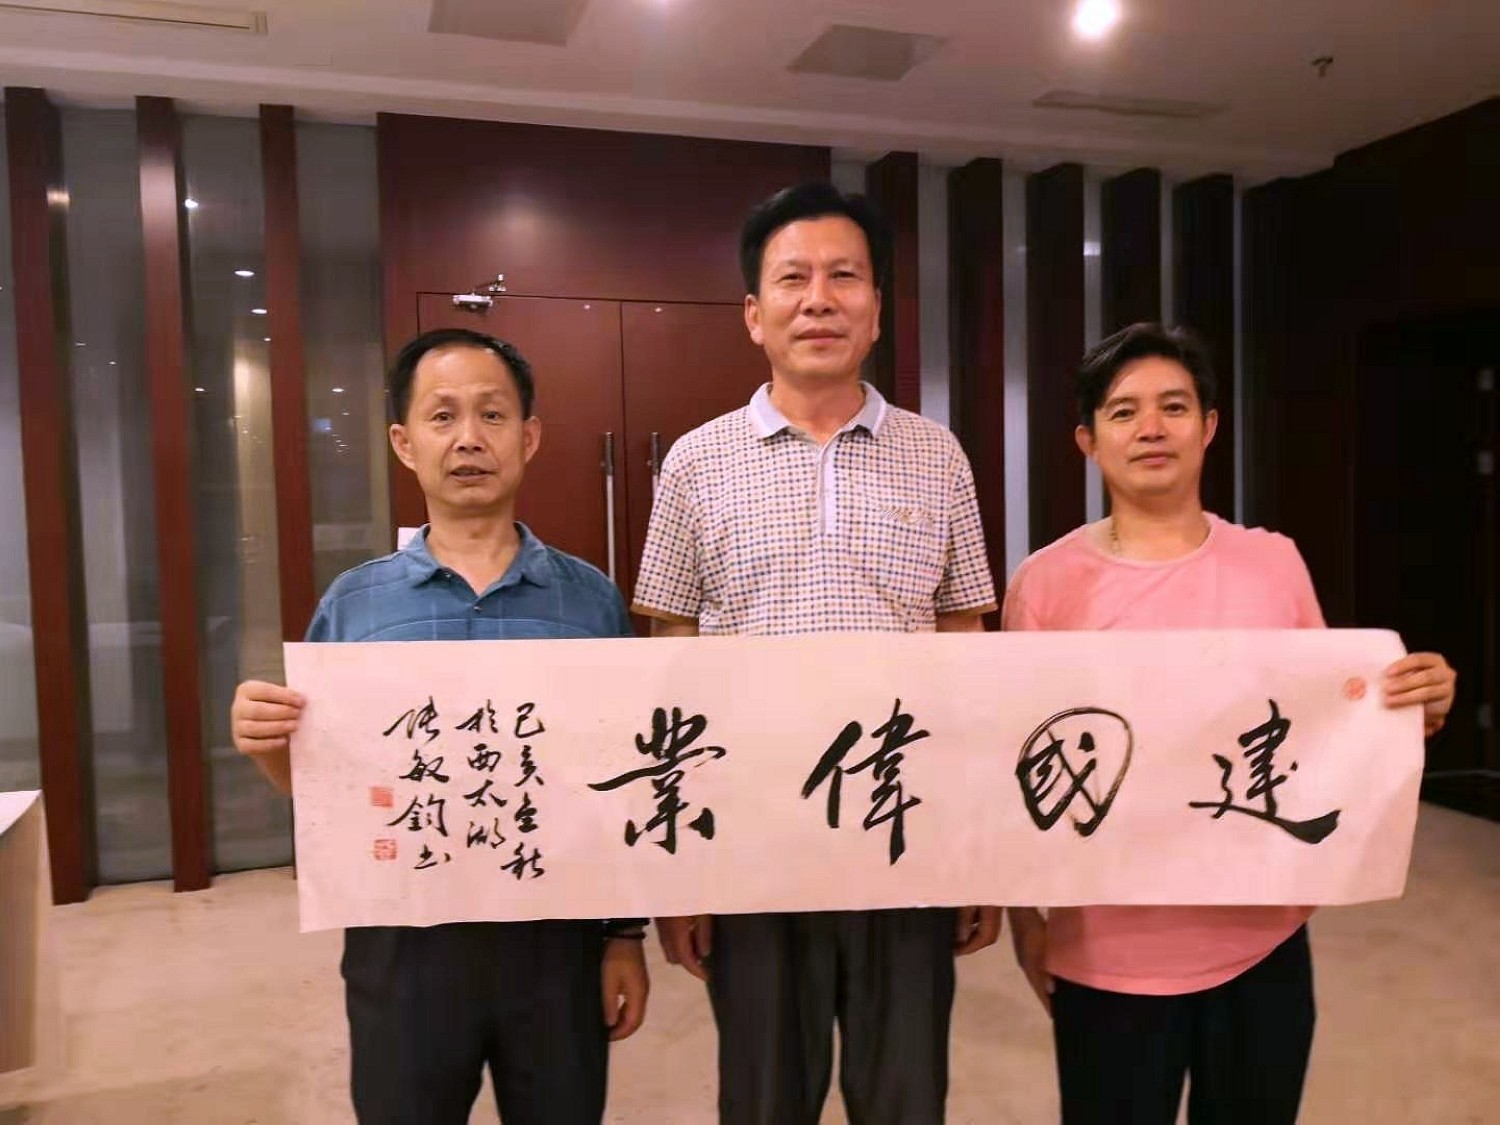 建國偉業
己亥金秋
於西太湖
張敏鈞書